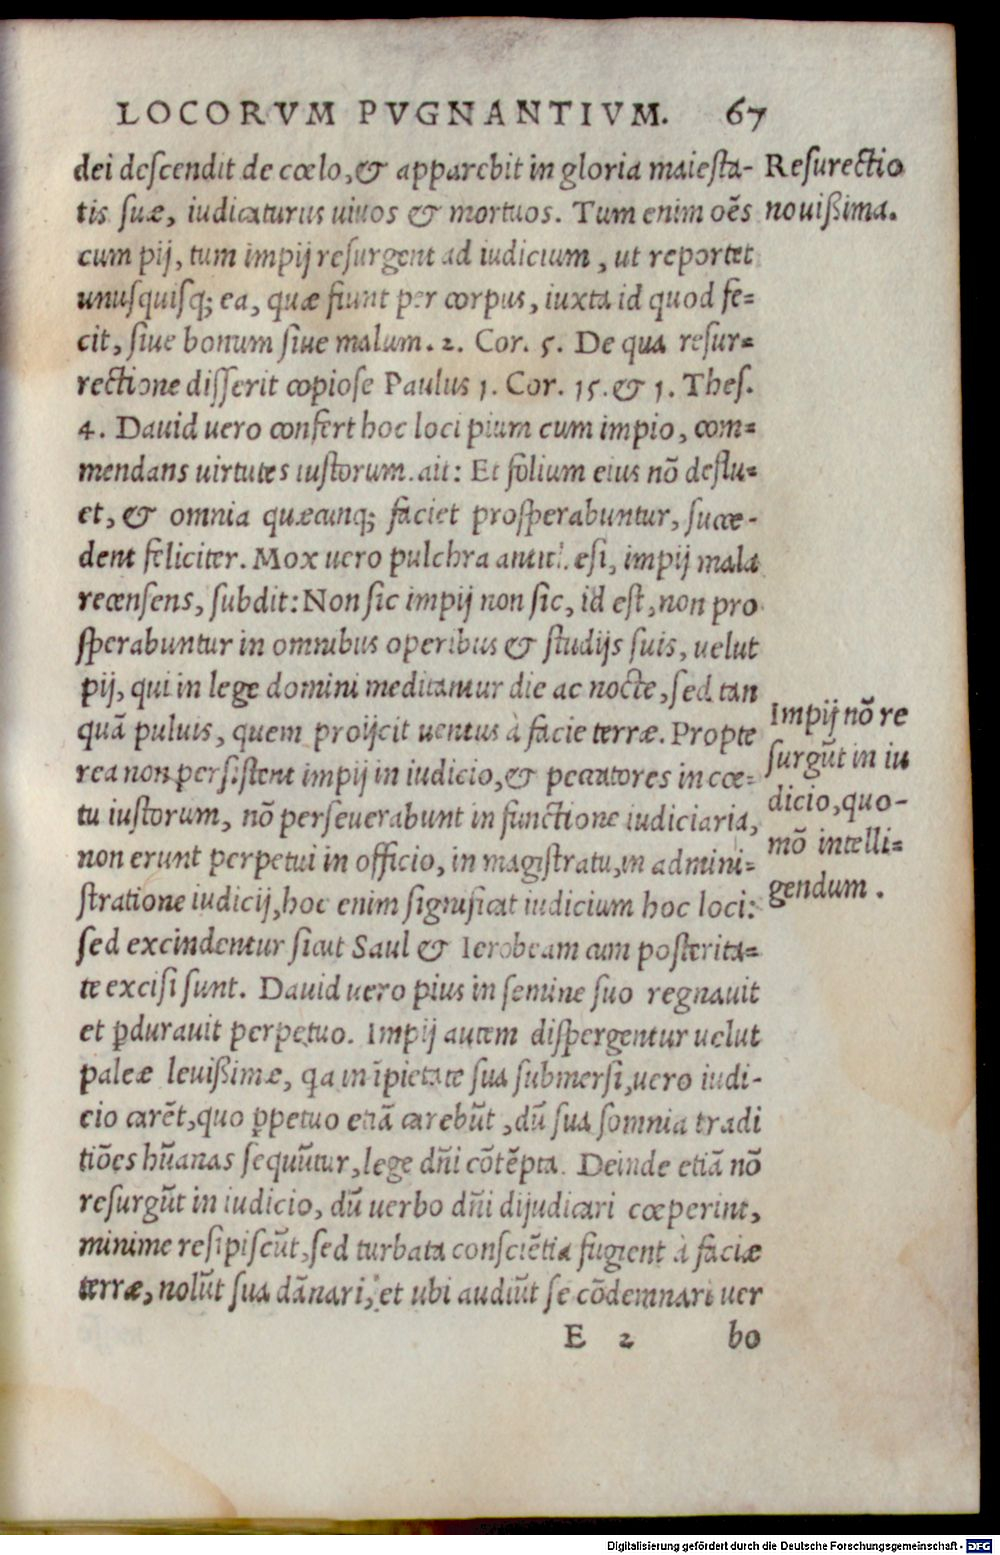 LOCORVM PVGNANTIVM. 67
dei descendit de cœlo, & apparebit in gloria maiesta-
tis suæ, iudicaturus uiuos & mortuos. Tum enim oẽs
cum pij, tum impij resurgent ad iudicium, ut reportet
unusquisq; ea, quæ fiunt per corpus, iuxta id quod fe-
cit, siue bonum siue malum. 2. Cor. 5. De qua resur-
rectione disserit copiose Paulus 1. Cor. 15. & 1. Thes.
4. Dauid uero confert hoc loci pium cum impio, com-
mendans uirtutes iustorum. ait: Et folium eius nõ deflu-
et, & omnia quæcunq; faciet prosperabuntur, succe-
dent feliciter. Mox uero pulchra antithesi, impij mala
recensens, subdit: Non sic impij non sic, id est, non pro
sperabuntur in omnibus operibus & studijs suis, uelut
pij, qui in lege domini meditantur die ac nocte, sed tan
quã puluis, quem proijcit uentus à facie terræ. Propte
rea non persistent impij in iudicio, & peccatores in cœ-
tu iustorum, nõ perseuerabunt in functione iudiciaria,
non erunt perpetui in officio, in magistratu, in admini-
stratione iudicij, hoc enim significat iudicium hoc loci:
sed excindentur sicut Saul & Ierobeam cum posterita-
te excisi sunt. Dauid uero pius in semine suo regnauit
et ꝑdurauit perpetuo. Impij autem dispergentur uelut
paleæ leuißimæ, qa in ĩpietate sua submersi, uero iudi-
cio carẽt, quo ꝑpetuo etiã carebũt, dũ sua somnia tradi
tiões hũanas sequũtur, lege dñi cõtẽpta. Deinde etiã nõ
resurgũt in iudicio, dũ uerbo dñi dijudicari cœperint,
minime resipiscũt, sed turbata consciẽtia fugient à faciæ
terræ, nolũt sua dãnari, et ubi audiũt se cõdemnari uer
E 2 bo
Resurectio
nouißima.
Impij nõ re
surgũt in iu
dicio, quo-
mõ intelli-
gendum.
Digitalisierung gefördert durch die Deutsche Forschungsgemeinschaft - DFG